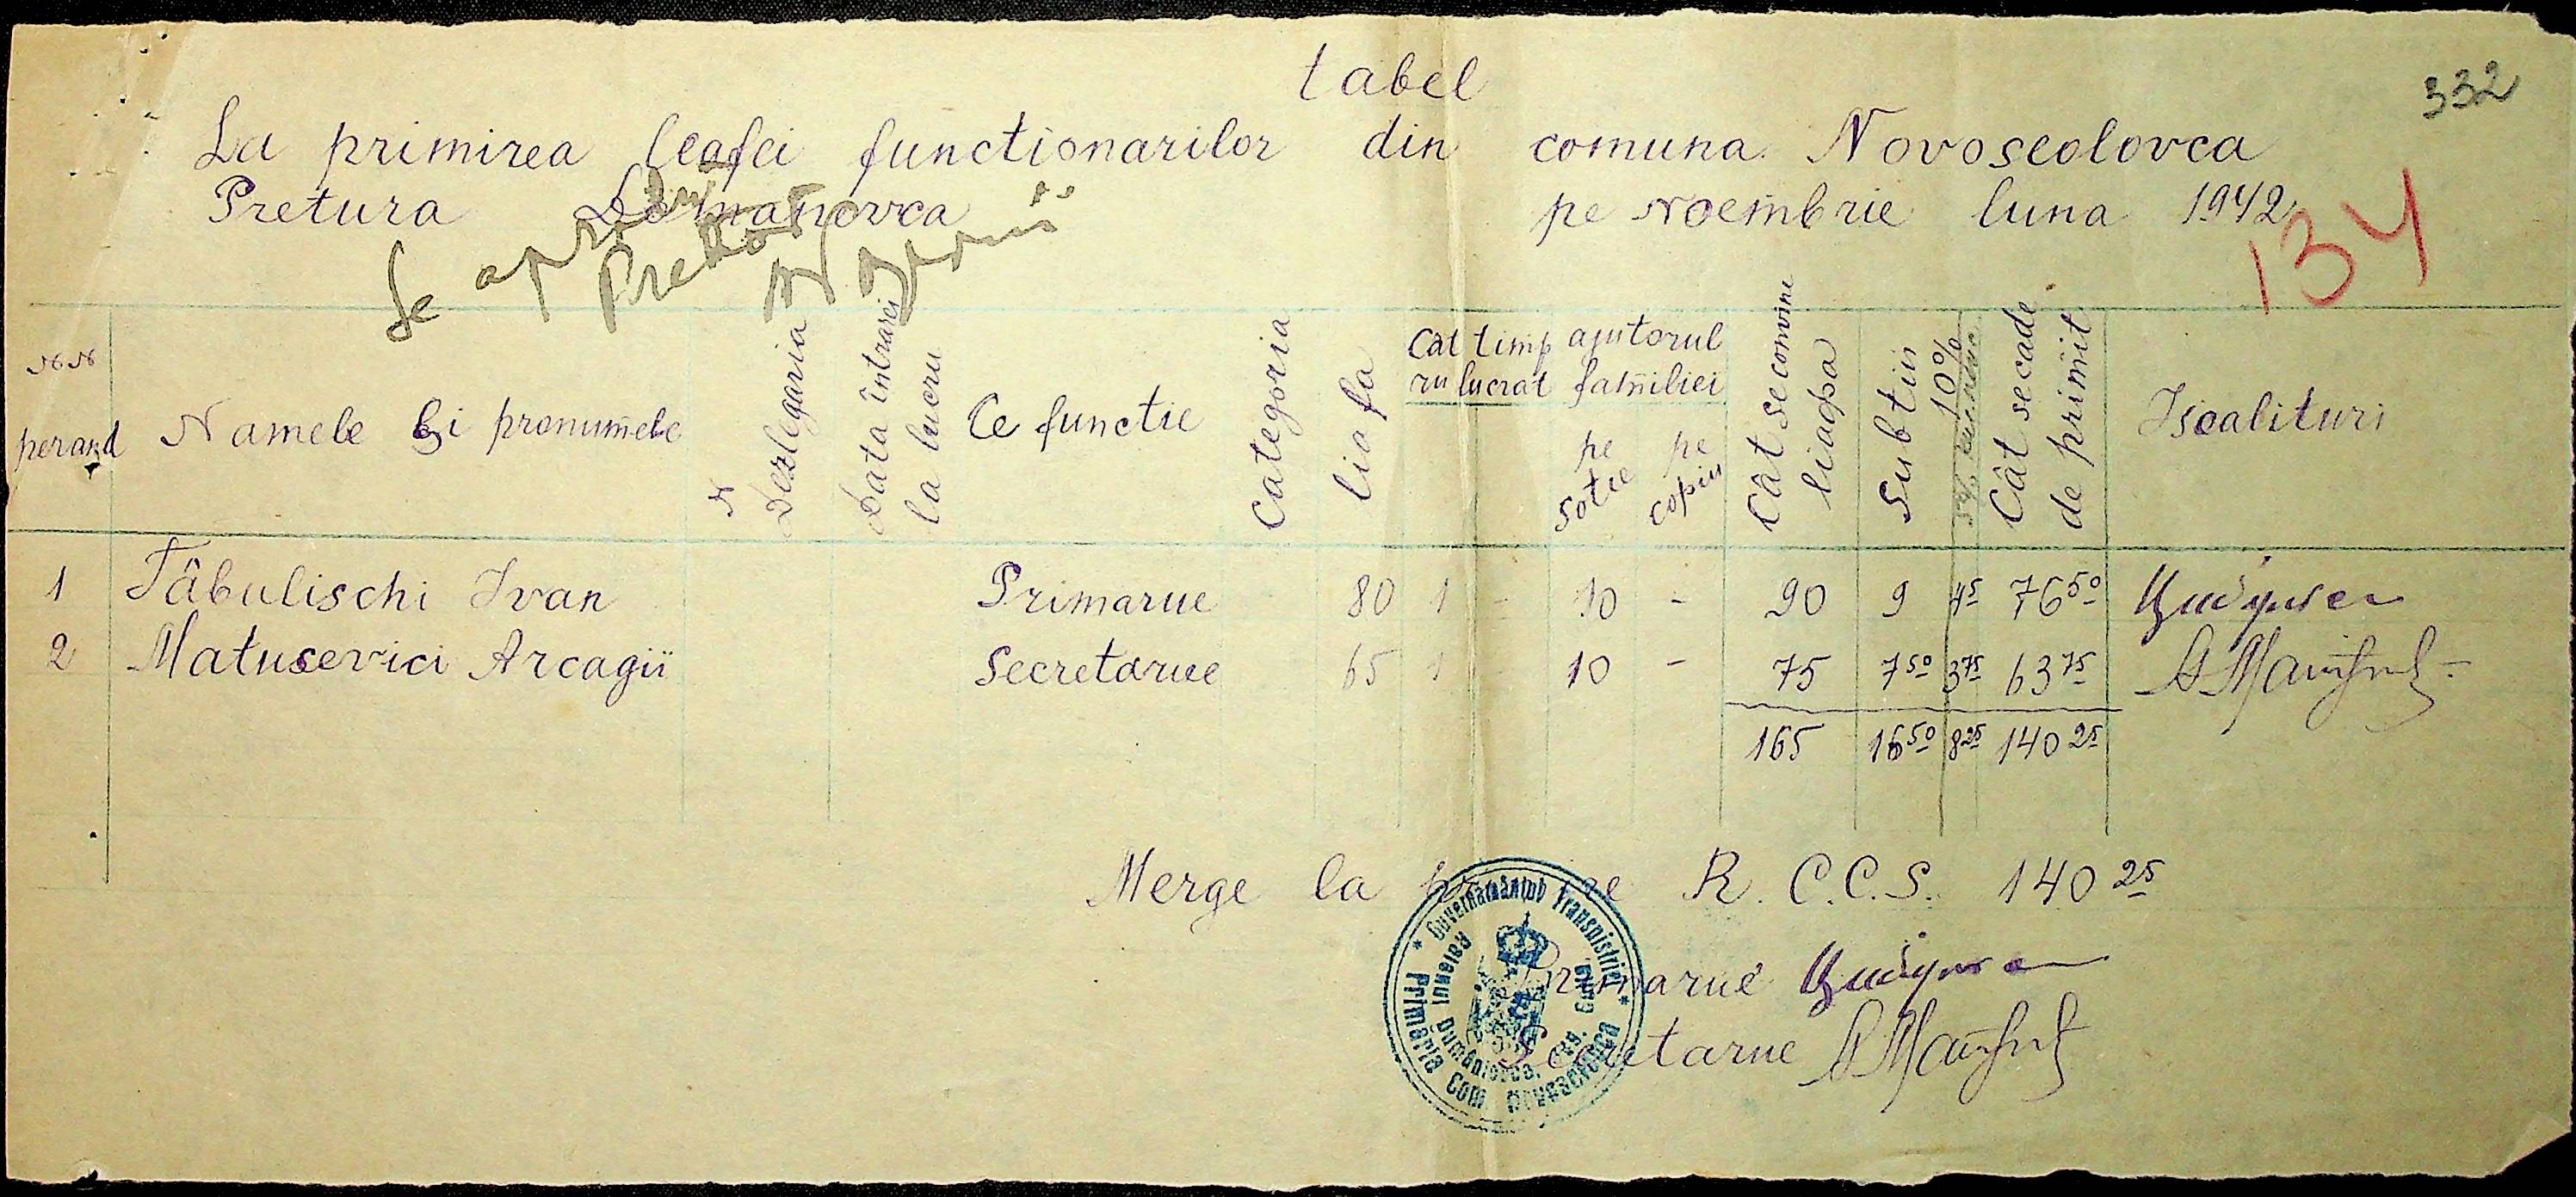 332
tabel
La primirea leafei functionarilor din comuna Novoseolovca
Pretura Domanovca pe Noembrie luna 1942
134
Se
Pretor
№№ perand
Namele și pronumele
N Dezlegaria
Data întrarei la lucru
Ce functie
Categoria
lia fa
Cât timp au lucrat
ajutorul familiei
pe sotie
pe copiu
Cât se convine liafa
Subtiu 10%
5%
Cât se cade de primit
Iscalituri
1 Tâbulischi Ivan Primarue 80 1 - 10 - 90 9 4⁵ 76⁵⁰
2 Matusevici Arcagii Secretarue 65 1 10 - 75 7⁵⁰ 3⁷⁵ 63⁷⁵
165 16⁵⁰ 8²⁵ 140²⁵
Merge la R. C.C.S. 140²⁵
Primarue
Secretarue
* Guvernământul Transnistriei *
Primăria Com
Raionul Dumaniovca, Jud. Golta